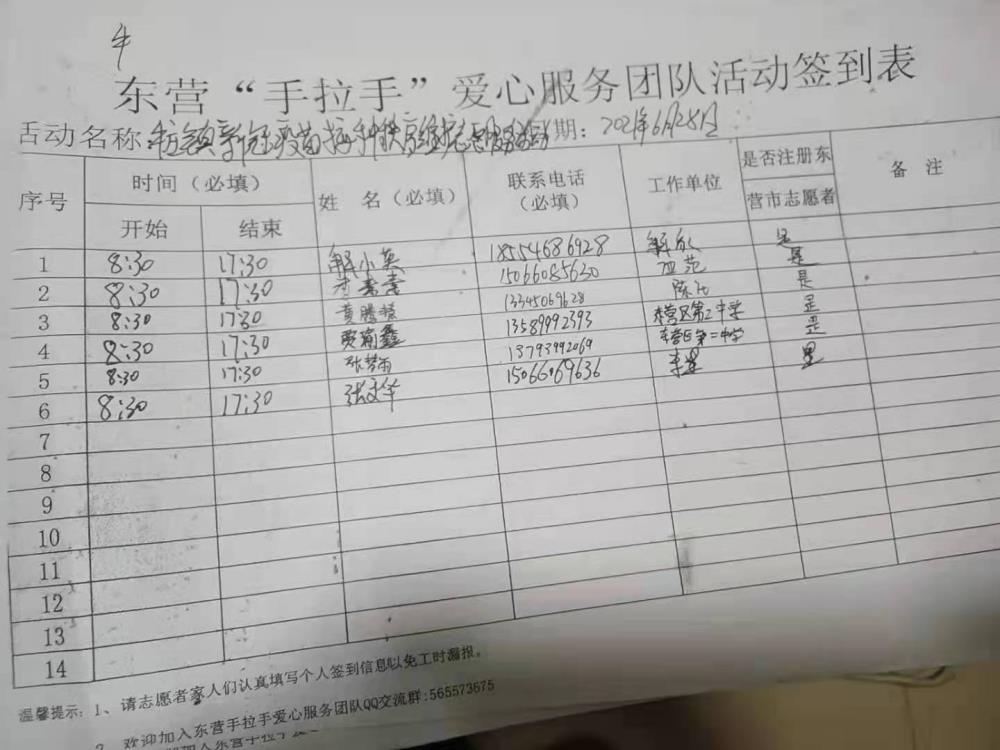 东营“手拉手”爱心服务团队活动签到表
活动名称: 新冠疫苗接种秩序维护志愿服务活动 日期: 2021年6月28日
序号 时间（必填） 姓 名（必填） 联系电话（必填） 工作单位 是否注册东营市志愿者 备 注
开始 结束
1 8:30 17:30 解小英 18554686928 是
2 8:30 17:30 15066085630 是
3 8:30 17:30 黄腾慧 13345069628 是
4 8:30 17:30 贾瀚鑫 13589992393 东营区第二中学 是
5 8:30 17:30 张梦雨 13793992069 东营区第一中学 是
6 8:30 17:30 张文华 15066069636 是
7
8
9
10
11
12
13
14
温馨提示: 1、请志愿者家人们认真填写个人签到信息以免工时漏报。
2、欢迎加入东营手拉手爱心服务团队QQ交流群:565573675